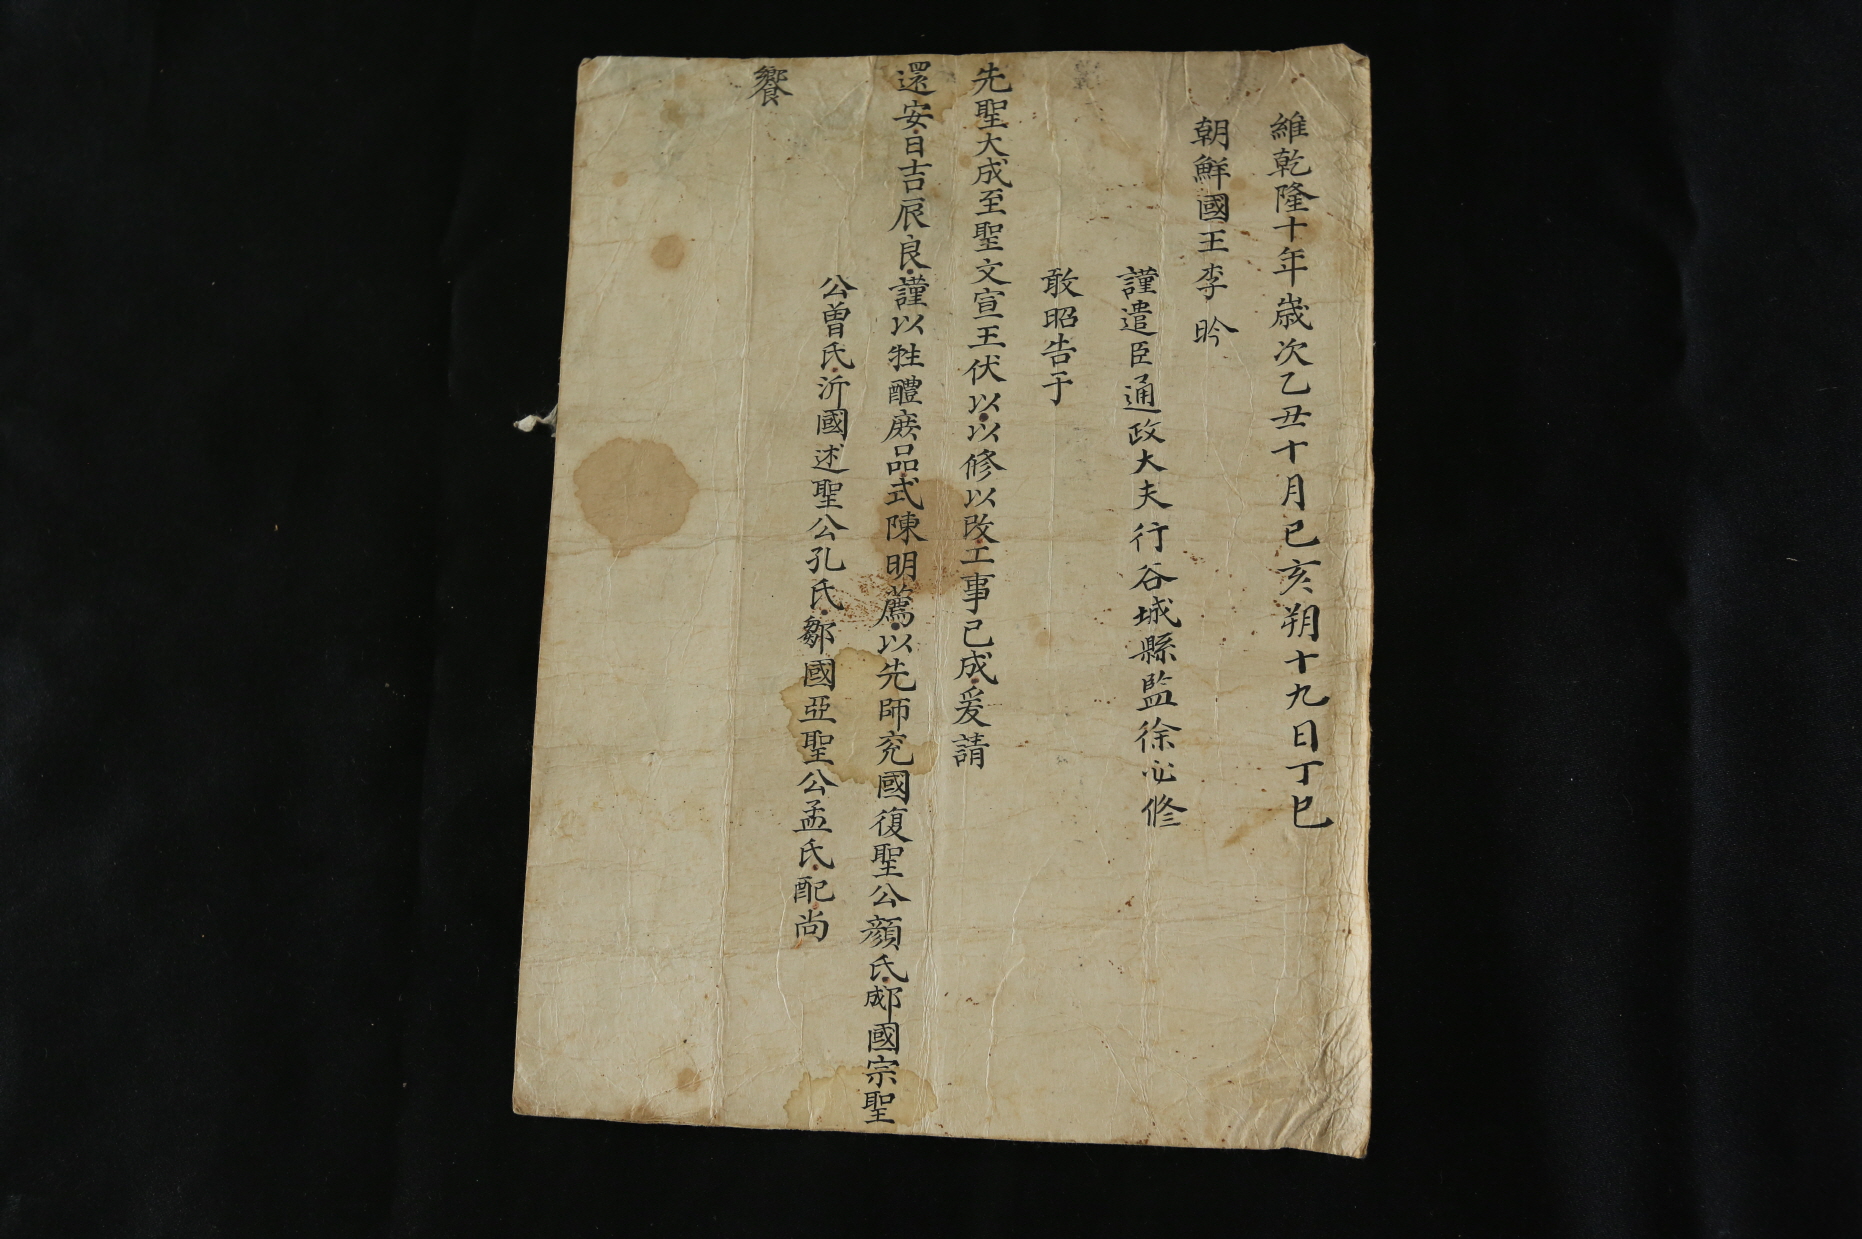 維乾隆十年歲次乙丑十月己亥朔十九日丁巳
朝鮮國王李昑
謹遣臣通政大夫行谷城縣監徐必修
敢昭告于
先聖大成至聖文宣王伏以以修以改工事已成爰請
還安日吉辰良謹以牲醴庶品式陳明薦以先師兖國復聖公顔氏郕國宗聖
公曾氏沂國述聖公孔氏鄒國亞聖公孟氏配尚
饗